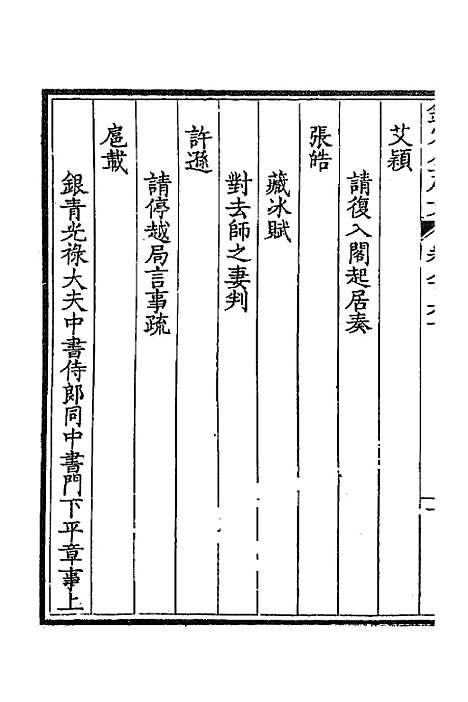 艾穎
請復入閣起居奏
張皓
藏冰賦
對去師之妻判
許遜
請停越局言事疏
扈載
銀青光祿大夫中書侍郎同中書門下平章事上